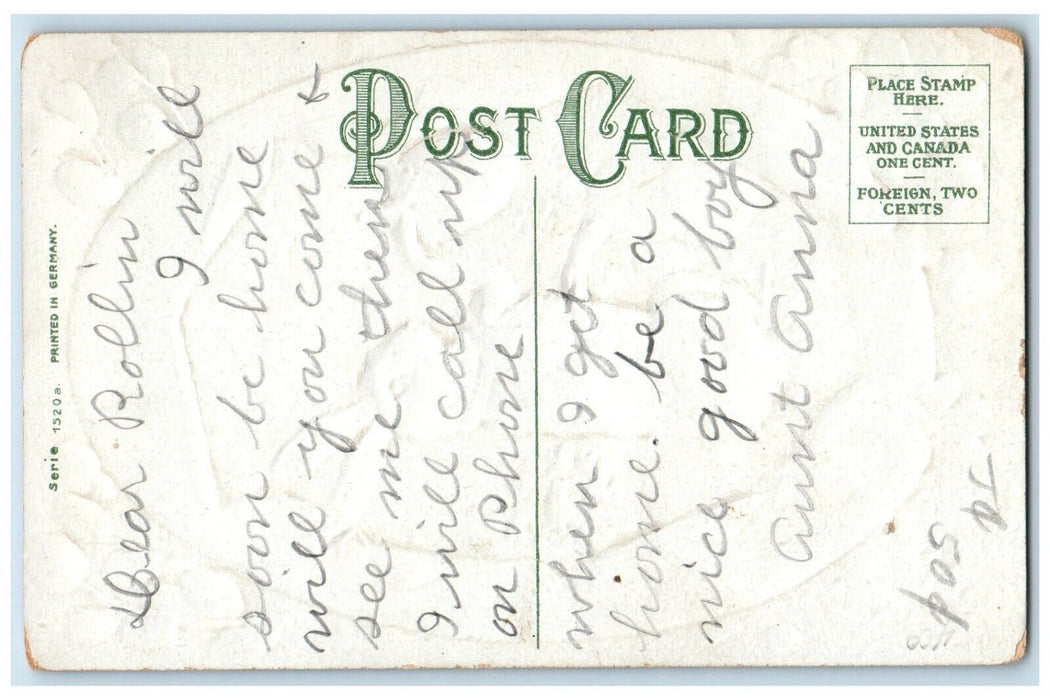 POST CARD
PLACE STAMP
HERE.
UNITED STATES
AND CANADA
ONE CENT.
FOREIGN, TWO
CENTS
Serie 1520a. PRINTED IN GERMANY.
Dear Rollin
I will
soon be home
will you come &
see me then
I will call up
on Phone
when I get
home. be a
nice good boy
Aunt Anna